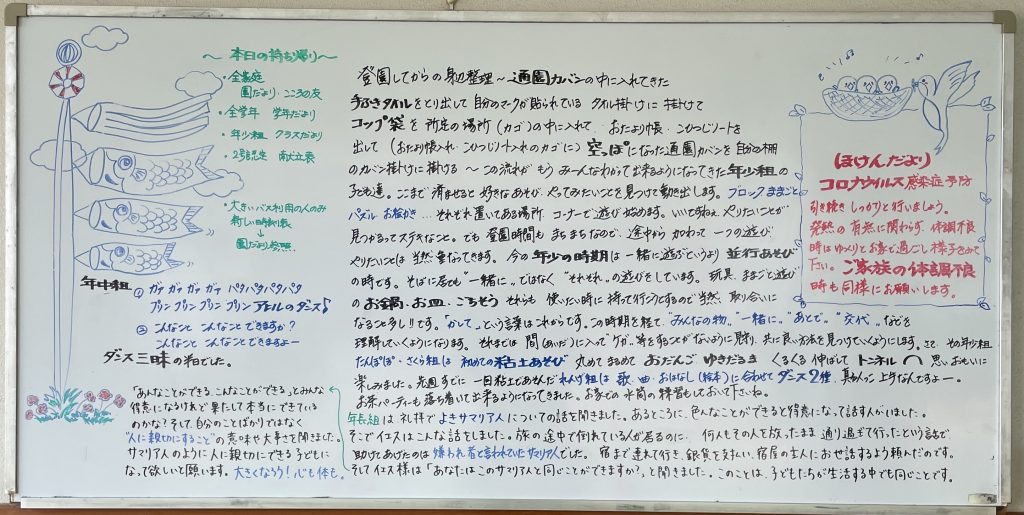 ～ 本日の持ち帰り～
・全家庭
園だより・こころの友
・全学年 学年だより
・年少組 クラスだより
・2号認定 献立表
・大きいバス利用の人のみ
新しい時刻表
↓
園だより参照
登園してからの身辺整理～通園カバンの中に入れてきた
手ふきタオルをとり出して自分のマークが貼られている タオル掛けに掛けて
コップ袋を所定の場所(カゴ)の中に入れて、おたより帳・こひつじノートを
出して(おたより帳入れ・こひつじノート入れのカゴに)空っぽになった通園カバンを自分の棚
のカバン掛けに掛ける ～この流れが もう みーんなわかって出来るようになってきた年少組の
子ども達。ここまで済ませると好きなあそび、やってみたいことを見つけて動き出します。ブロック ままごと
パズル お絵かき…それぞれ置いてある場所、コーナーで遊び始めます。いいですねぇ、やりたいことが
見つかるってステキなこと。でも登園時間も まちまちなので、途中から加わって一つの遊び
やりたいことは当然 重なってきます。今の年少の時期は一緒に遊ぶというより 並行あそび
の時です。そばに居ても“一緒に”ではなく“それぞれ”の遊びをしています。玩具、ままごと遊び
のお鍋・お皿・ごちそう それらも 使いたい時に持って行こうとするので当然、取り合いに
なること多しです。「かして」という言葉はこれからです。この時期を経て、“みんなの物”“一緒に”“あとで”“交代”などを
理解していくようになります。それまでは 間(あいだ)に入って ケガ等をすることがないように見守り、共に良い方法を見つけていくようにします。さて、その年少組
たんぽぽ・さくら組は 初めての粘土あそび 丸めて まるめて おだんご ゆきだるま くるくる 伸ばして トンネル 思いおもいに
楽しみました。先週すでに一日粘土であそんだれんげ組は 歌・曲・おはなし(絵本)に合わせて ダンス2種、真似っこ上手なんですよー。
お茶パーティーも落ち着いて出来るようになってきました。お家での水筒の練習もしておいて下さいね。
(ほけんだより)
コロナウイルス感染症予防
引き続き しっかりと行いましょう。
発熱の有無に関わらず、体調不良
時はゆっくりとお家で過ごし様子をみて
下さい。ご家族の体調不良
時も同様にお願いします。
年中組
① ガオ ガオ ガオ ガオ パタパタパタパタ
プリン プリン プリン プリン アヒルのダンス♪
② こんなこと こんなこと できますか?
こんなこと こんなこと できますよー
ダンス三昧の松でした。
年長組は 礼拝で よきサマリア人についての話を聞きました。あるところに、色んなことができると得意になって話す人がいました。
そこでイエスはこんな話をしました。旅の途中で倒れている人が居るのに、何人もその人を放ったまま 通り過ぎて行ったという話で、
助けてあげたのは 嫌われ者と言われていたサマリア人でした。宿まで連れて行き、銀貨を支払い、宿屋の主人にお世話するよう頼んだのです。
そしてイエス様は「あなたはこのサマリア人と同じことができますか?」と聞きました。このことは、子どもたちが生活する中でも同じことです。
「あんなことができる、こんなことができる」とみんな
得意になるけれど果たして本当にできている
のかな?そして、自分のことばかりではなく
“人に親切にすること”の意味や大事さを聞きました。
サマリア人のように人に親切にできる子どもに
なって欲しいと願います。大きくなろう!心も体も。